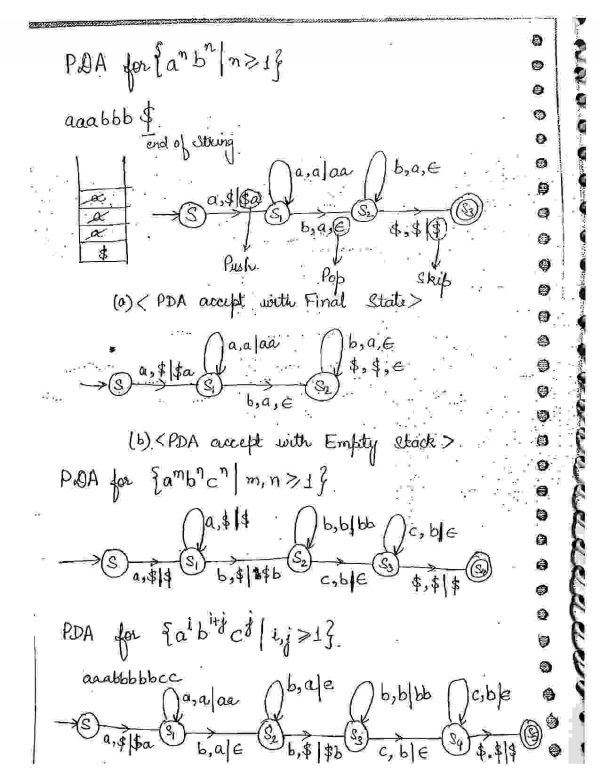 PDA for {aⁿbⁿ | n ≥ 1}
aaabbb $
end of string
a
a
a
$
a, a|aa
b, a, ϵ
S
a, $|$a
S₁
b, a, ϵ
S₂
$, $|$
S₃
Push
Pop
Skip
(a) < PDA accept with Final State >
a, a|aa
b, a, ϵ
$, $, ϵ
S
a, $|$a
S₁
b, a, ϵ
S₂
(b) < PDA accept with Empty stack >
PDA for {aᵐbⁿcⁿ | m, n ≥ 1}
a, $|$
b, b|bb
c, b|ϵ
S
a, $|$
S₁
b, $|$b
S₂
c, b|ϵ
S₃
$, $|$
S₄
PDA for {aⁱbⁱ⁺ʲcʲ | i, j ≥ 1}.
aaabbbbbcc
a, a|aa
b, a|ϵ
b, b|bb
c, b|ϵ
S
a, $|$a
S₁
b, a|ϵ
S₂
b, $|$b
S₃
c, b|ϵ
S₄
$, $|$
S₅